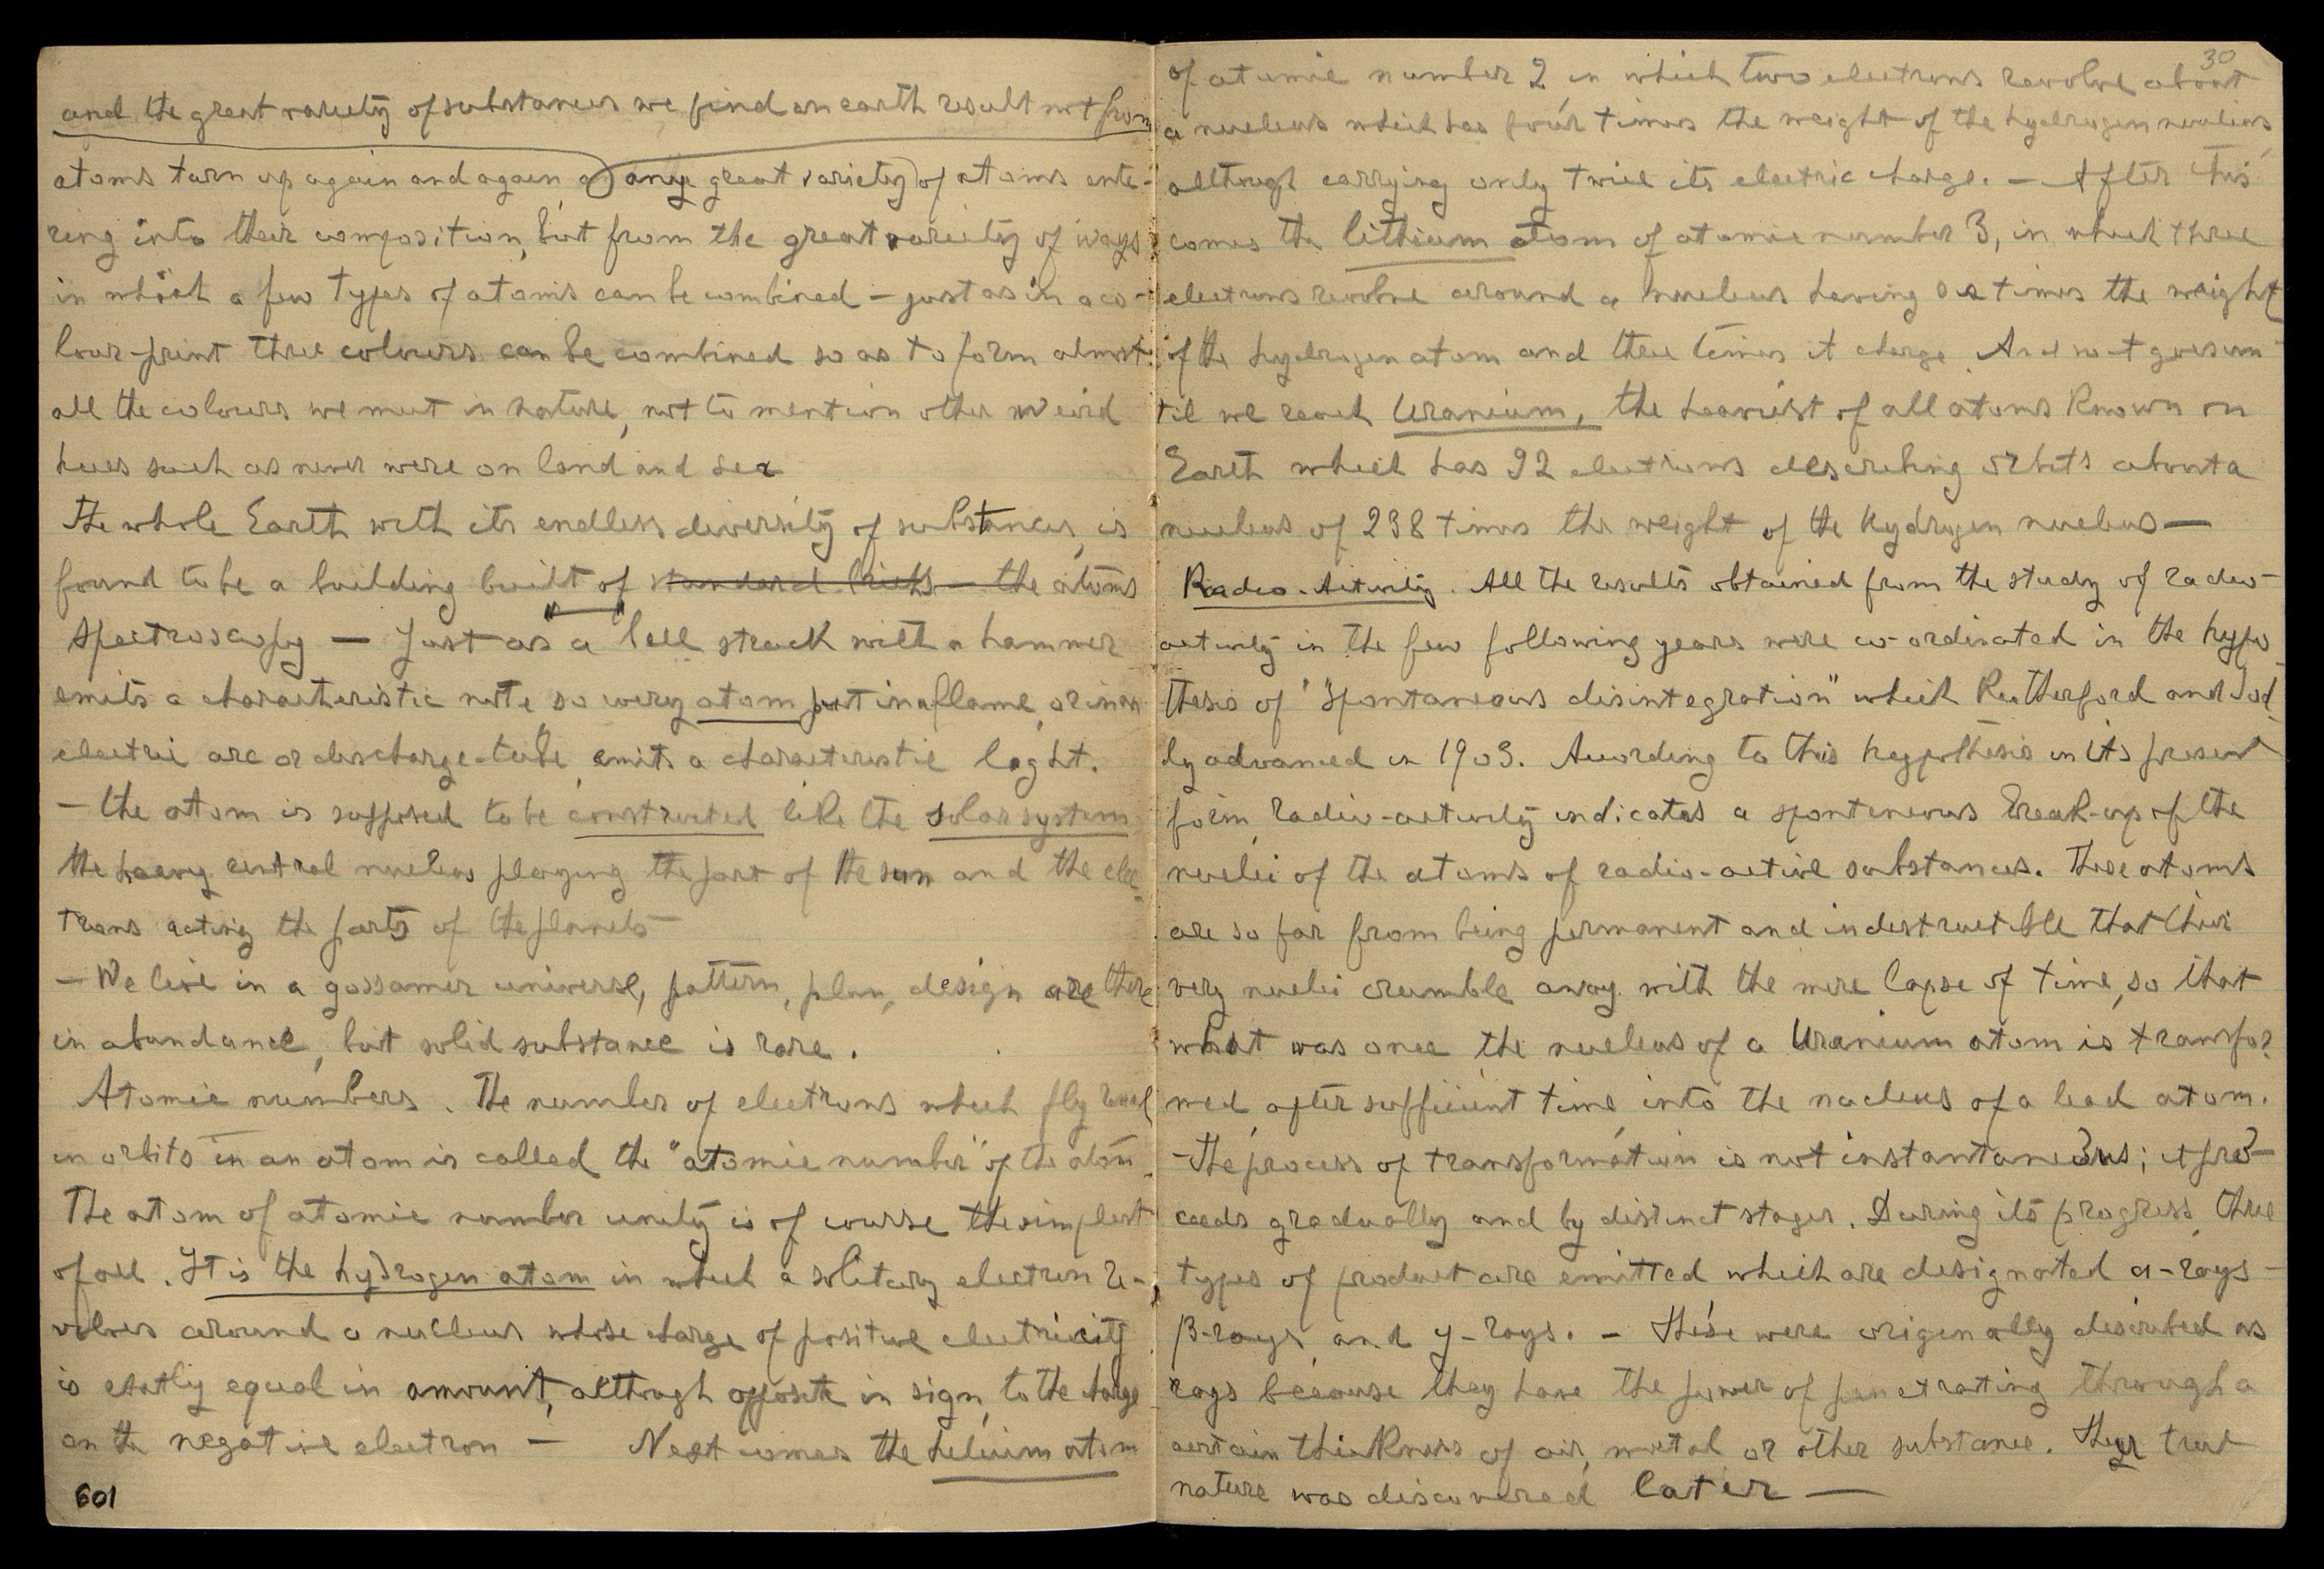 and the great variety of substances we find on earth result not from
atoms turn up again and again any great variety of atoms ente-
ring into their composition, but from the great variety of ways
in which a few types of atoms can be combined – just as in a co-
lour-print three colours can be combined so as to form almost
all the colours we meet in nature, not to mention other weird
hues such as never were on land and sea
The whole Earth with its endless diversity of substances, is
found to be a building built of standard bricks – the atoms
Spectroscopy – Just as a "bell" struck with a hammer
emits a characteristic note, so every atom put in a flame or in an
electric arc or discharge-tube, emits a characteristic light.
– the atom is supposed to be constructed like the solar system
the heavy central nucleus playing the part of the sun and the elec-
trons acting the parts of the planets
– We live in a gossamer universe, pattern, plan, design are there
in abundance, but solid substance is rare.
Atomic numbers. The number of electrons which fly round
in orbits in an atom is called the "atomic number" of the atom.
The atom of atomic number unity is of course the simplest
of all. It is the hydrogen atom in which a solitary electron re-
volves around a nucleus whose charge of positive electricity
is exatly equal in amount, although opposite in sign, to the charge
on the negative electron – Next comes the helium atom
601
30
of atomic number 2 in which two electrons revolve about
a nucleus which has four times the weight of the hydrogen nucleus
although carrying only twice its electric charge. – After this
comes the lithium atom of atomic number 3, in which three
electrons revolve around a nucleus having six times the weight
of the hydrogen atom and three times it charge. And so it goes un-
til we reach Uranium, the heaviest of all atoms known on
Earth which has 92 electrons describing orbits about a
nucleus of 238 times the weight of the hydrogen nucleus –
Radio-Activity. All the results obtained from the study of radio-
activity in the few following years were co-ordinated in the hypo-
thesis of "spontaneous disintegration" which Rutherford and Sod-
dy advanced in 1903. According to this hypothesis in its present
form, radio-activity indicates a spontaneous break-up of the
nuclei of the atoms of radio-active substances. These atoms
are so far from being permanent and indestructible that their
very nuclei crumble away with the mere lapse of time, so that
what was once the nucleus of a Uranium atom is transfor-
med, after sufficient time, into the nucleus of a lead atom.
– The process of transformation is not instantaneous; it pro-
ceeds gradually and by distinct stages. During its progress, three
types of product are emitted which are designated α-rays –
β-rays, and γ-rays. – These were originally described as
rays because they have the power of penetrating through a
certain thickness of air, metal or other substance. They true
nature was discovered later –